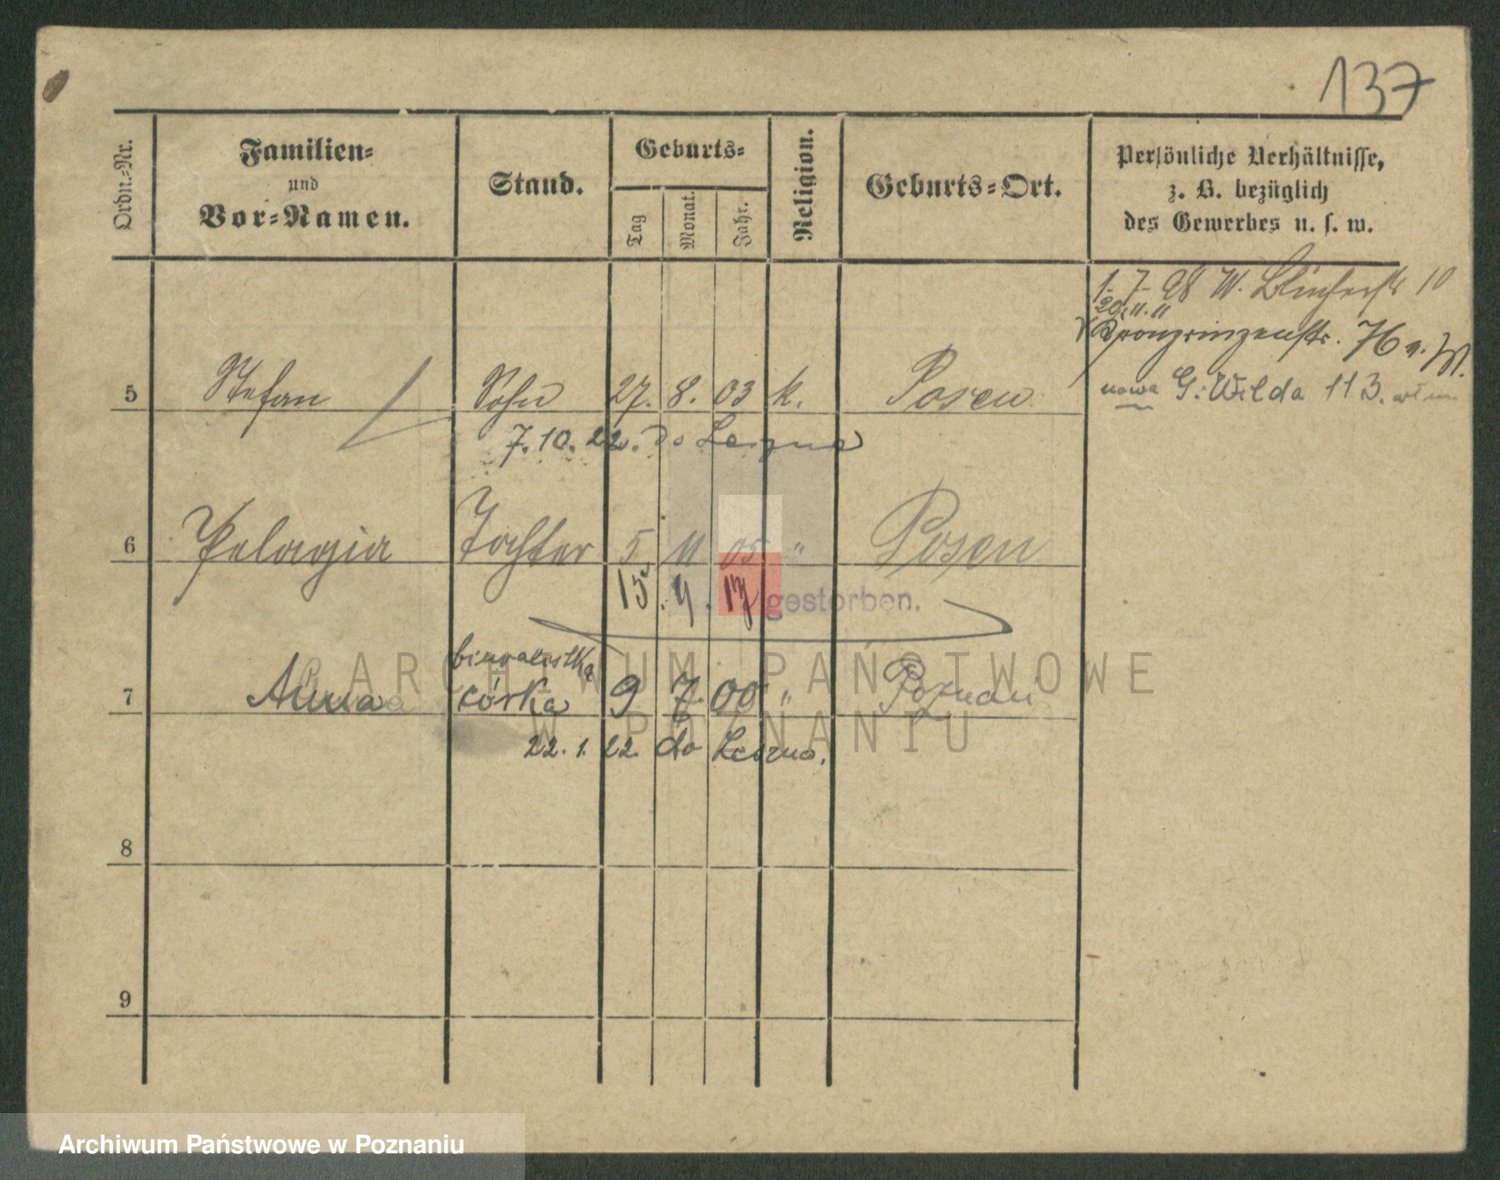 137
Ordn.-Nr.
Familien-
und
Vor-Namen.
Stand.
Geburts-
Tag
Monat.
Jahr.
Religion.
Geburts-Ort.
Persönliche Verhältnisse,
z. B. bezüglich
des Gewerbes u. s. w.
1. 7. 98 W. 10
20. " "
Kronprinzenstr. 76 W.
nowa G. Wilda 113.
5 Stefan Sohn 27. 8. 03 k. Posen
7. 10. 22. do Leszna
6 Pelagia Tochter 5 11 05 " Posen
15. 9. 17 gestorben.
biuralistka
7 Anna córka 9 7 00 " Poznań
22. 1. 22 do Leszna.
8
9
ARCHIWUM PAŃSTWOWE
W POZNANIU
Archiwum Państwowe w Poznaniu